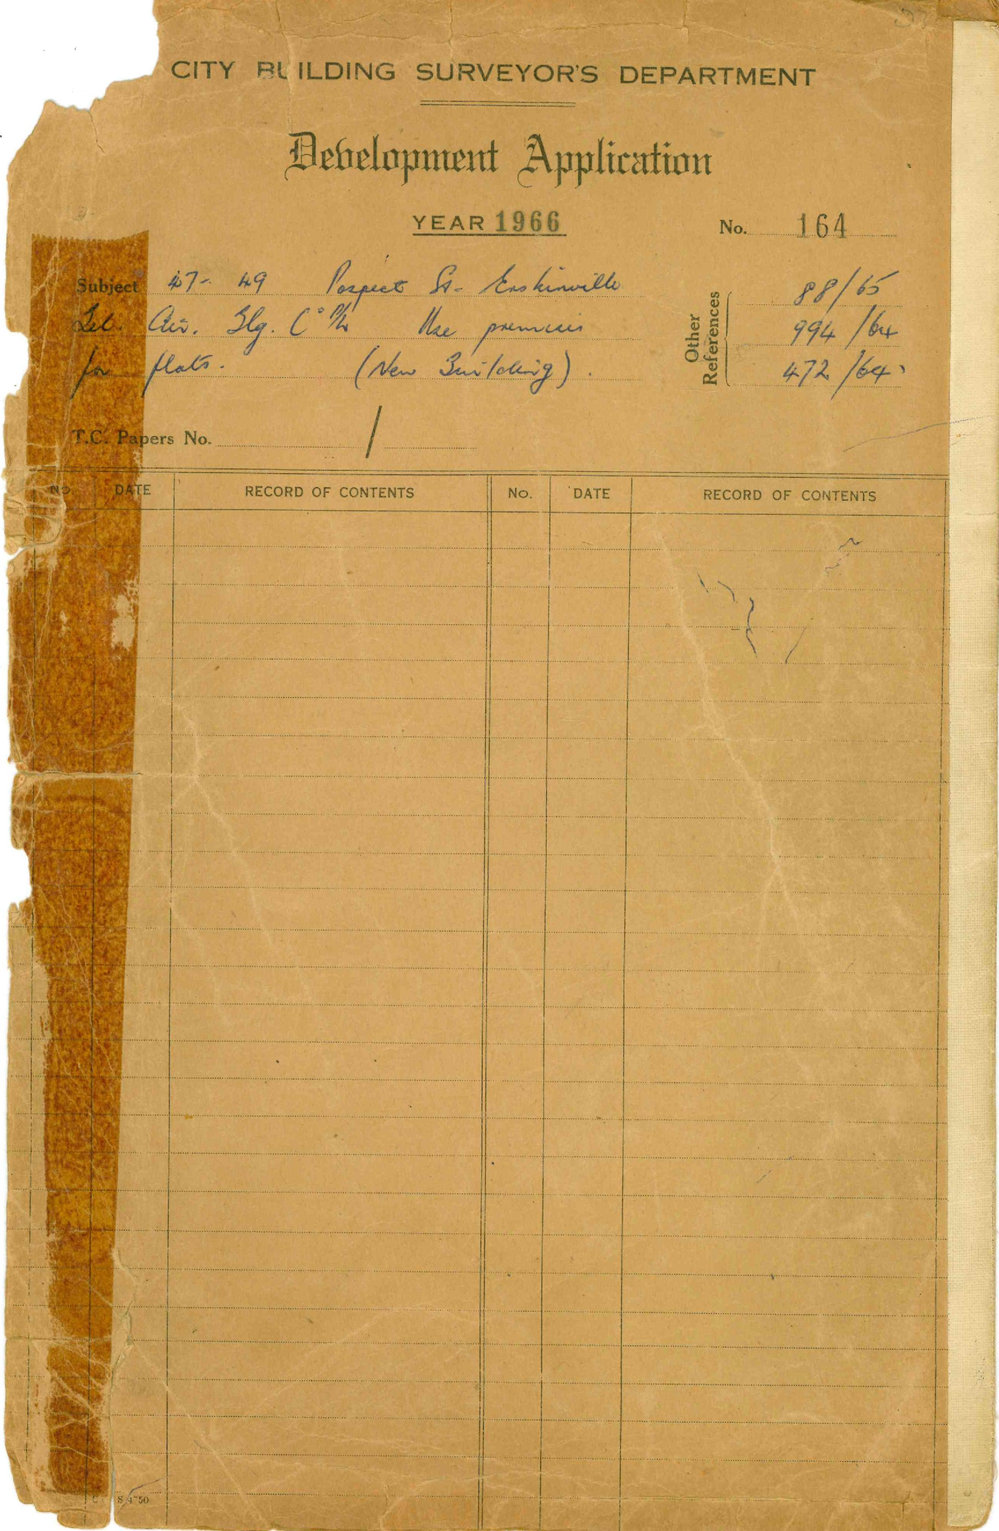 CITY BUILDING SURVEYOR'S DEPARTMENT
Development Application
YEAR 1966
No. 164
Subject 47- 49 Prospect St- Erskinville
Use premises
for flats. (New Building).
Other References
88/65
994/64
472/64
T.C. Papers No. /
No. DATE RECORD OF CONTENTS No. DATE RECORD OF CONTENTS